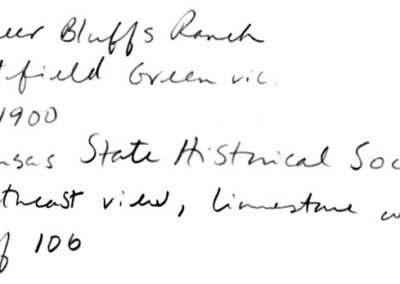 neer Bluffs Ranch
tfield Green vic.
1900
nsas State Historical Soc
theast view, limestone
of 106